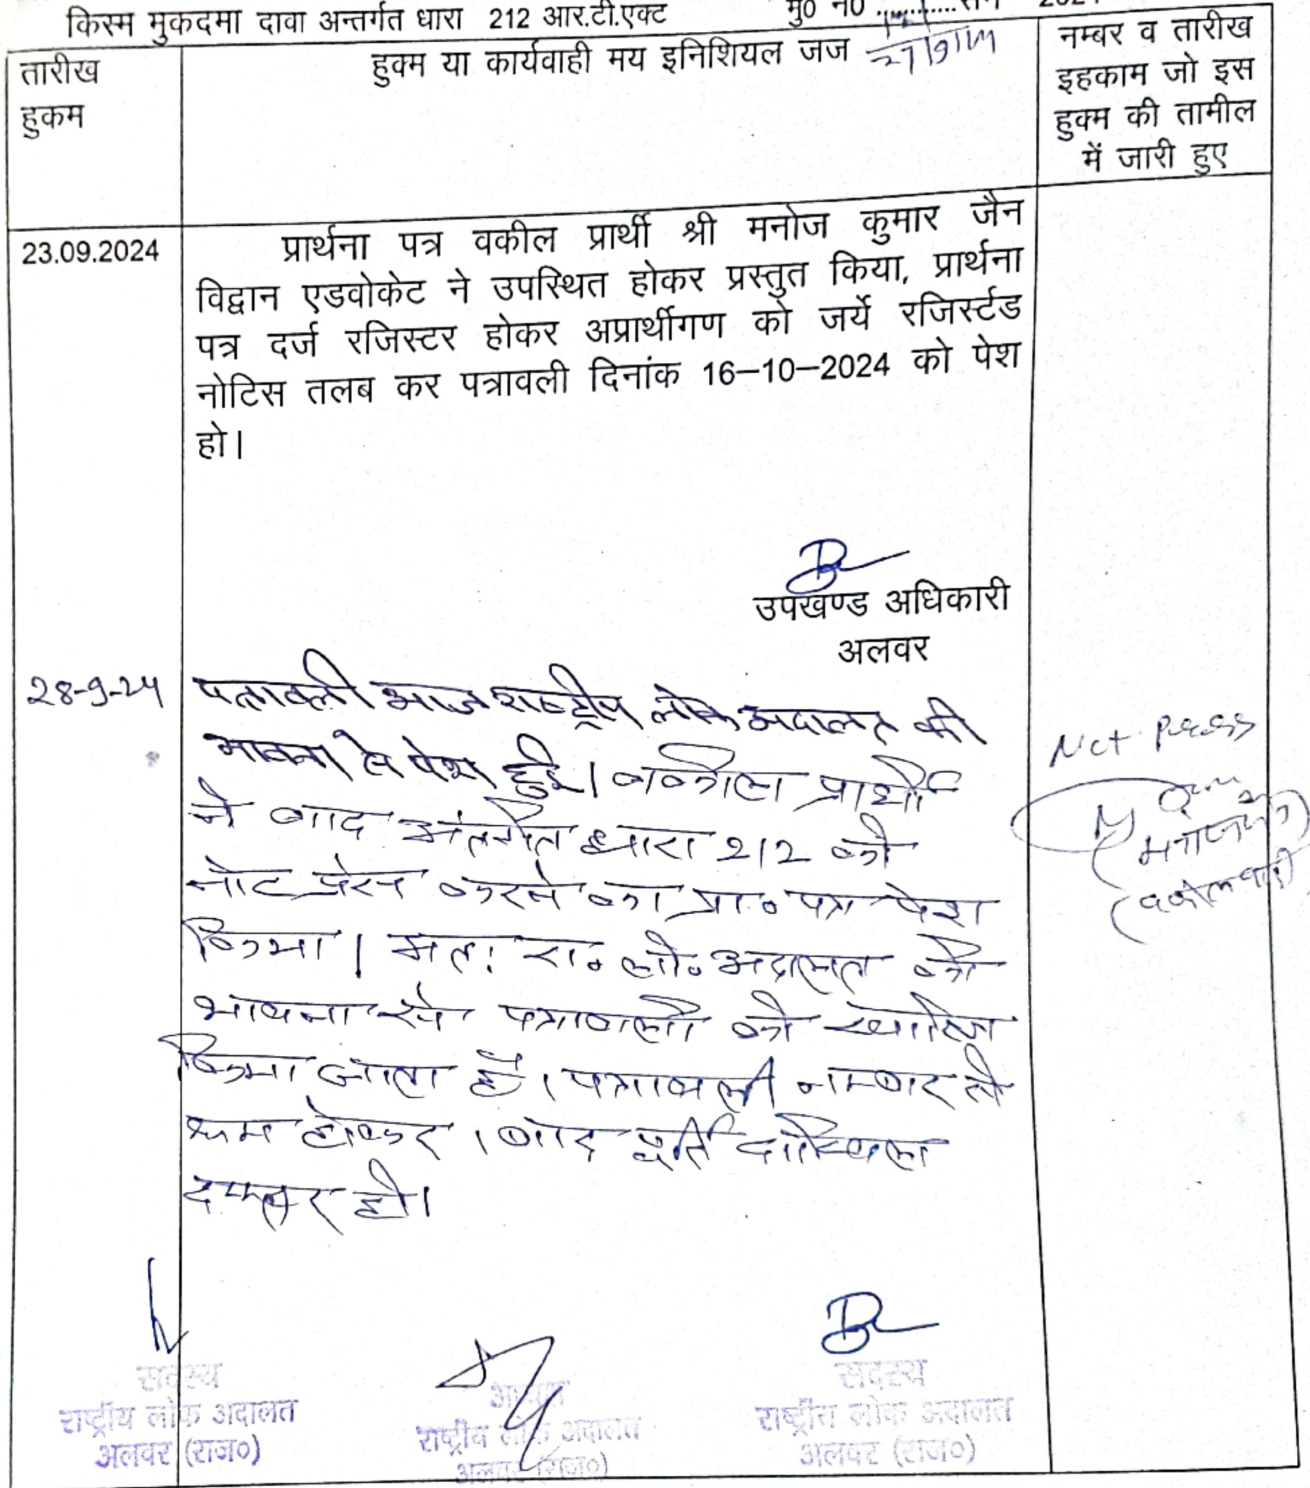 किस्म मुकदमा दावा अन्तर्गत धारा 212 आर.टी.एक्ट मु0 न0
तारीख
हुकम
हुक्म या कार्यवाही मय इनिशियल जज
नम्बर व तारीख
इहकाम जो इस
हुक्म की तामील
में जारी हुए
23.09.2024
प्रार्थना पत्र वकील प्रार्थी श्री मनोज कुमार जैन
विद्वान एडवोकेट ने उपस्थित होकर प्रस्तुत किया, प्रार्थना
पत्र दर्ज रजिस्टर होकर अप्रार्थीगण को जर्ये रजिर्स्टड
नोटिस तलब कर पत्रावली दिनांक 16–10–2024 को पेश
हो।
उपखण्ड अधिकारी
अलवर
28-9-24
पत्रावली आज राष्ट्रीय लोक अदालत की
भावना से पेश हुई। वकील प्रार्थी
ने वाद अंतर्गत धारा 212 को
नोट प्रेस करने का प्रा० पत्र पेश
किया। अतः रा० लो० अदालत की
भावना से पत्रावली को खारिज
किया जाता है। पत्रावली नम्बर से
कम होकर। बाद पूर्ति दाखिल
दफ्तर हो।
Not Press
सदस्य
राष्ट्रीय लोक अदालत
अलवर (राज०)
राष्ट्रीय लोक अदालत
अलवर (राज०)
सदस्य
राष्ट्रीय लोक अदालत
अलवर (राज०)